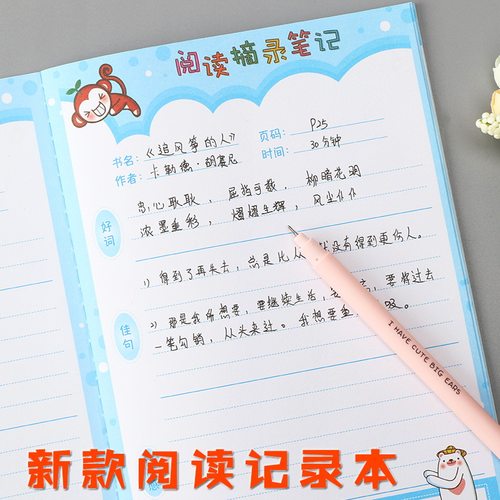 阅读摘录笔记
书名：《追风筝的人》 页码：P25
作者：卡勒德·胡赛尼 时间：30分钟
好词
忠心耿耿， 屈指可数， 柳暗花明
浓墨重彩， 熠熠生辉， 风尘仆仆
佳句
1）得到了再失去，总是比从 就没有得到更伤人。
2）那是我所想要，要继续生活， 要将过去
一笔勾销，从头来过。我想要重 吸。
I HAVE CUTE BIG EARS
新款阅读记录本